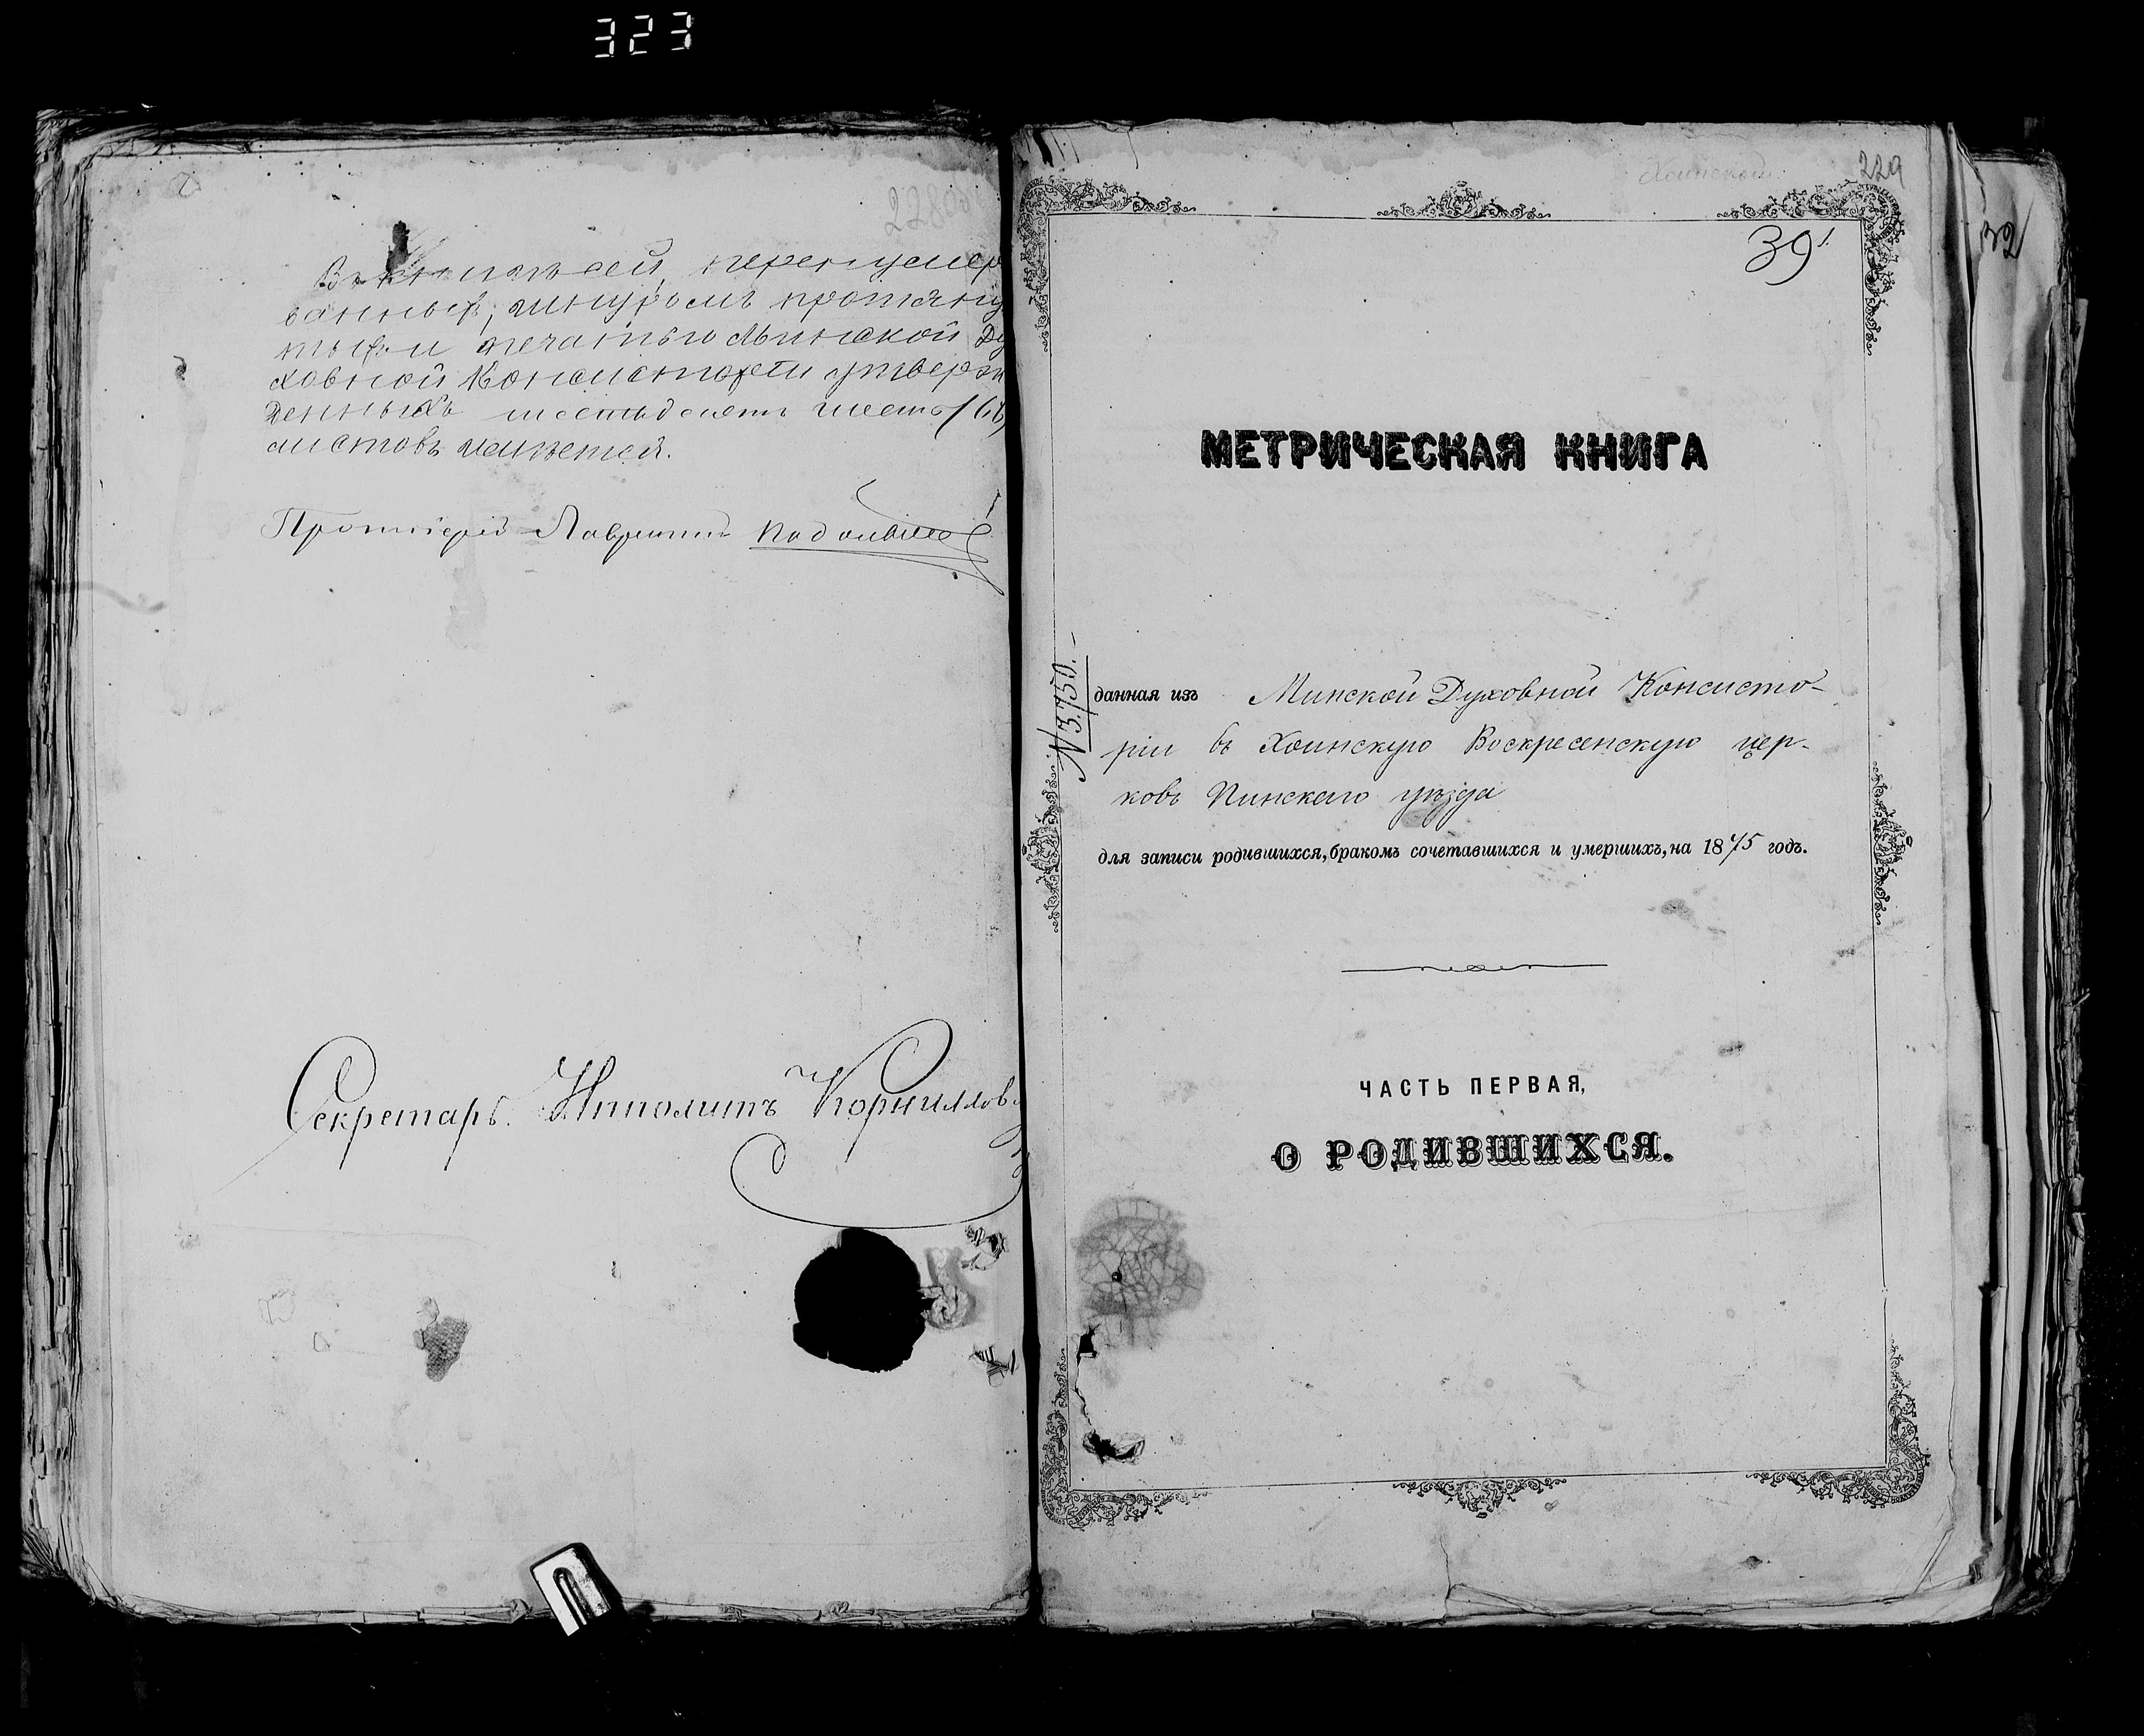 323
228об
Въ книгѣ сей, перенумеро
ванныхъ, шнуромъ протяну
тыхъ и печатью Минской Ду
ховной Консисторіи утверж
денныхъ шестьдесятъ шесть (66)
листовъ имѣется.
Протоіерей Лаврентій
Секретарь Ипполитъ Корниллов
Хоинской
229
32
39
МЕТРИЧЕСКАЯ КНИГА
№ 3750.
данная изъ Минской Духовной Консисто-
ріи въ Хоинскую Воскресенскую цер-
ковь Пинскаго уѣзда
для записи родившихся, бракомъ сочетавшихся и умершихъ, на 1875 годъ.
ЧАСТЬ ПЕРВАЯ,
О РОДИВШИХСЯ.